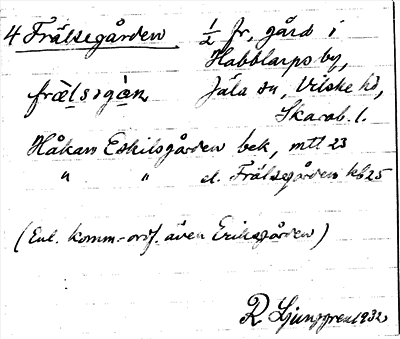 4 Frälsegården ½ fr, gård i
Habblarps by,
frälsgån Jäla sn, Vilske hd,
Skarab. l.
Håkan Eskilsgården bek, mtl 23
" " el. Frälsegården kb 25
(Enl. komm.-ordf. även Eriksgården)
R. Ljunggren 1932